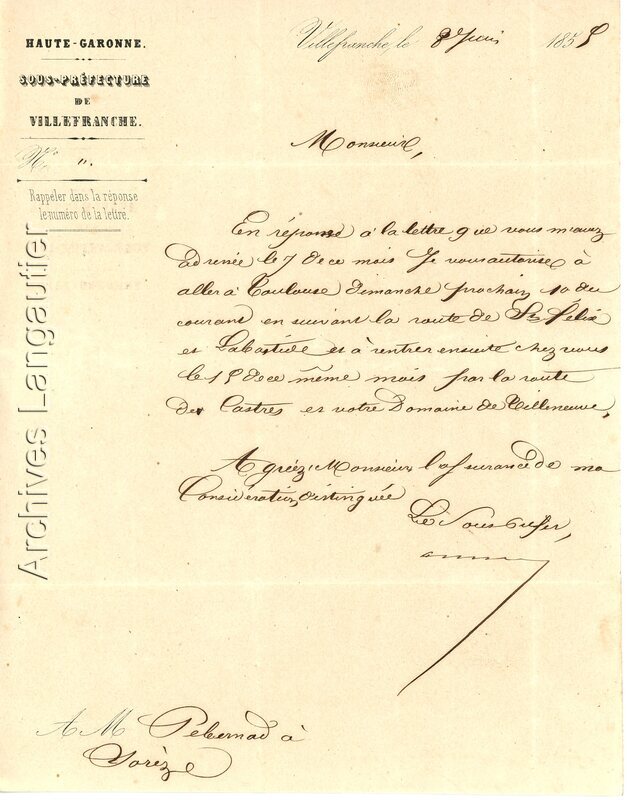 HAUTE-GARONNE.
SOUS-PRÉFECTURE
DE
VILLEFRANCHE.
N° "
Rappeler dans la réponse
le numéro de la lettre.
Villefranche, le 8 Juin 1855
Monsieur,
En réponse à la lettre que vous m'avez
adressée le 7 de ce mois Je vous autorise à
aller à Toulouse dimanche prochain 10 du
courant en suivant la route de St Félix
et Labastide et à rentrer ensuite chez vous
le 15 de ce même mois par la route
de Castres et votre Domaine de Villeneuve,
Agréez, Monsieur, l'assurance de ma
Considération distinguée
Le Sous Préfet,
A M Pebernad à
Sorèze
Archives Langautier